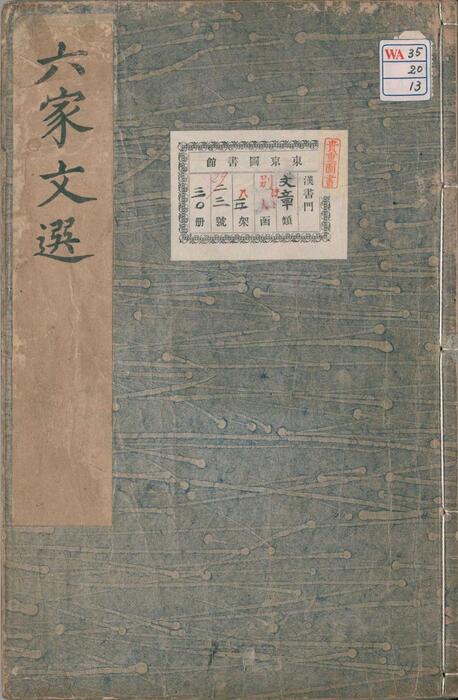 六家文選
WA 35
20
13
貴重圖書
東京圖書館
漢書門
文章類
別 函
架
二三號
三〇册